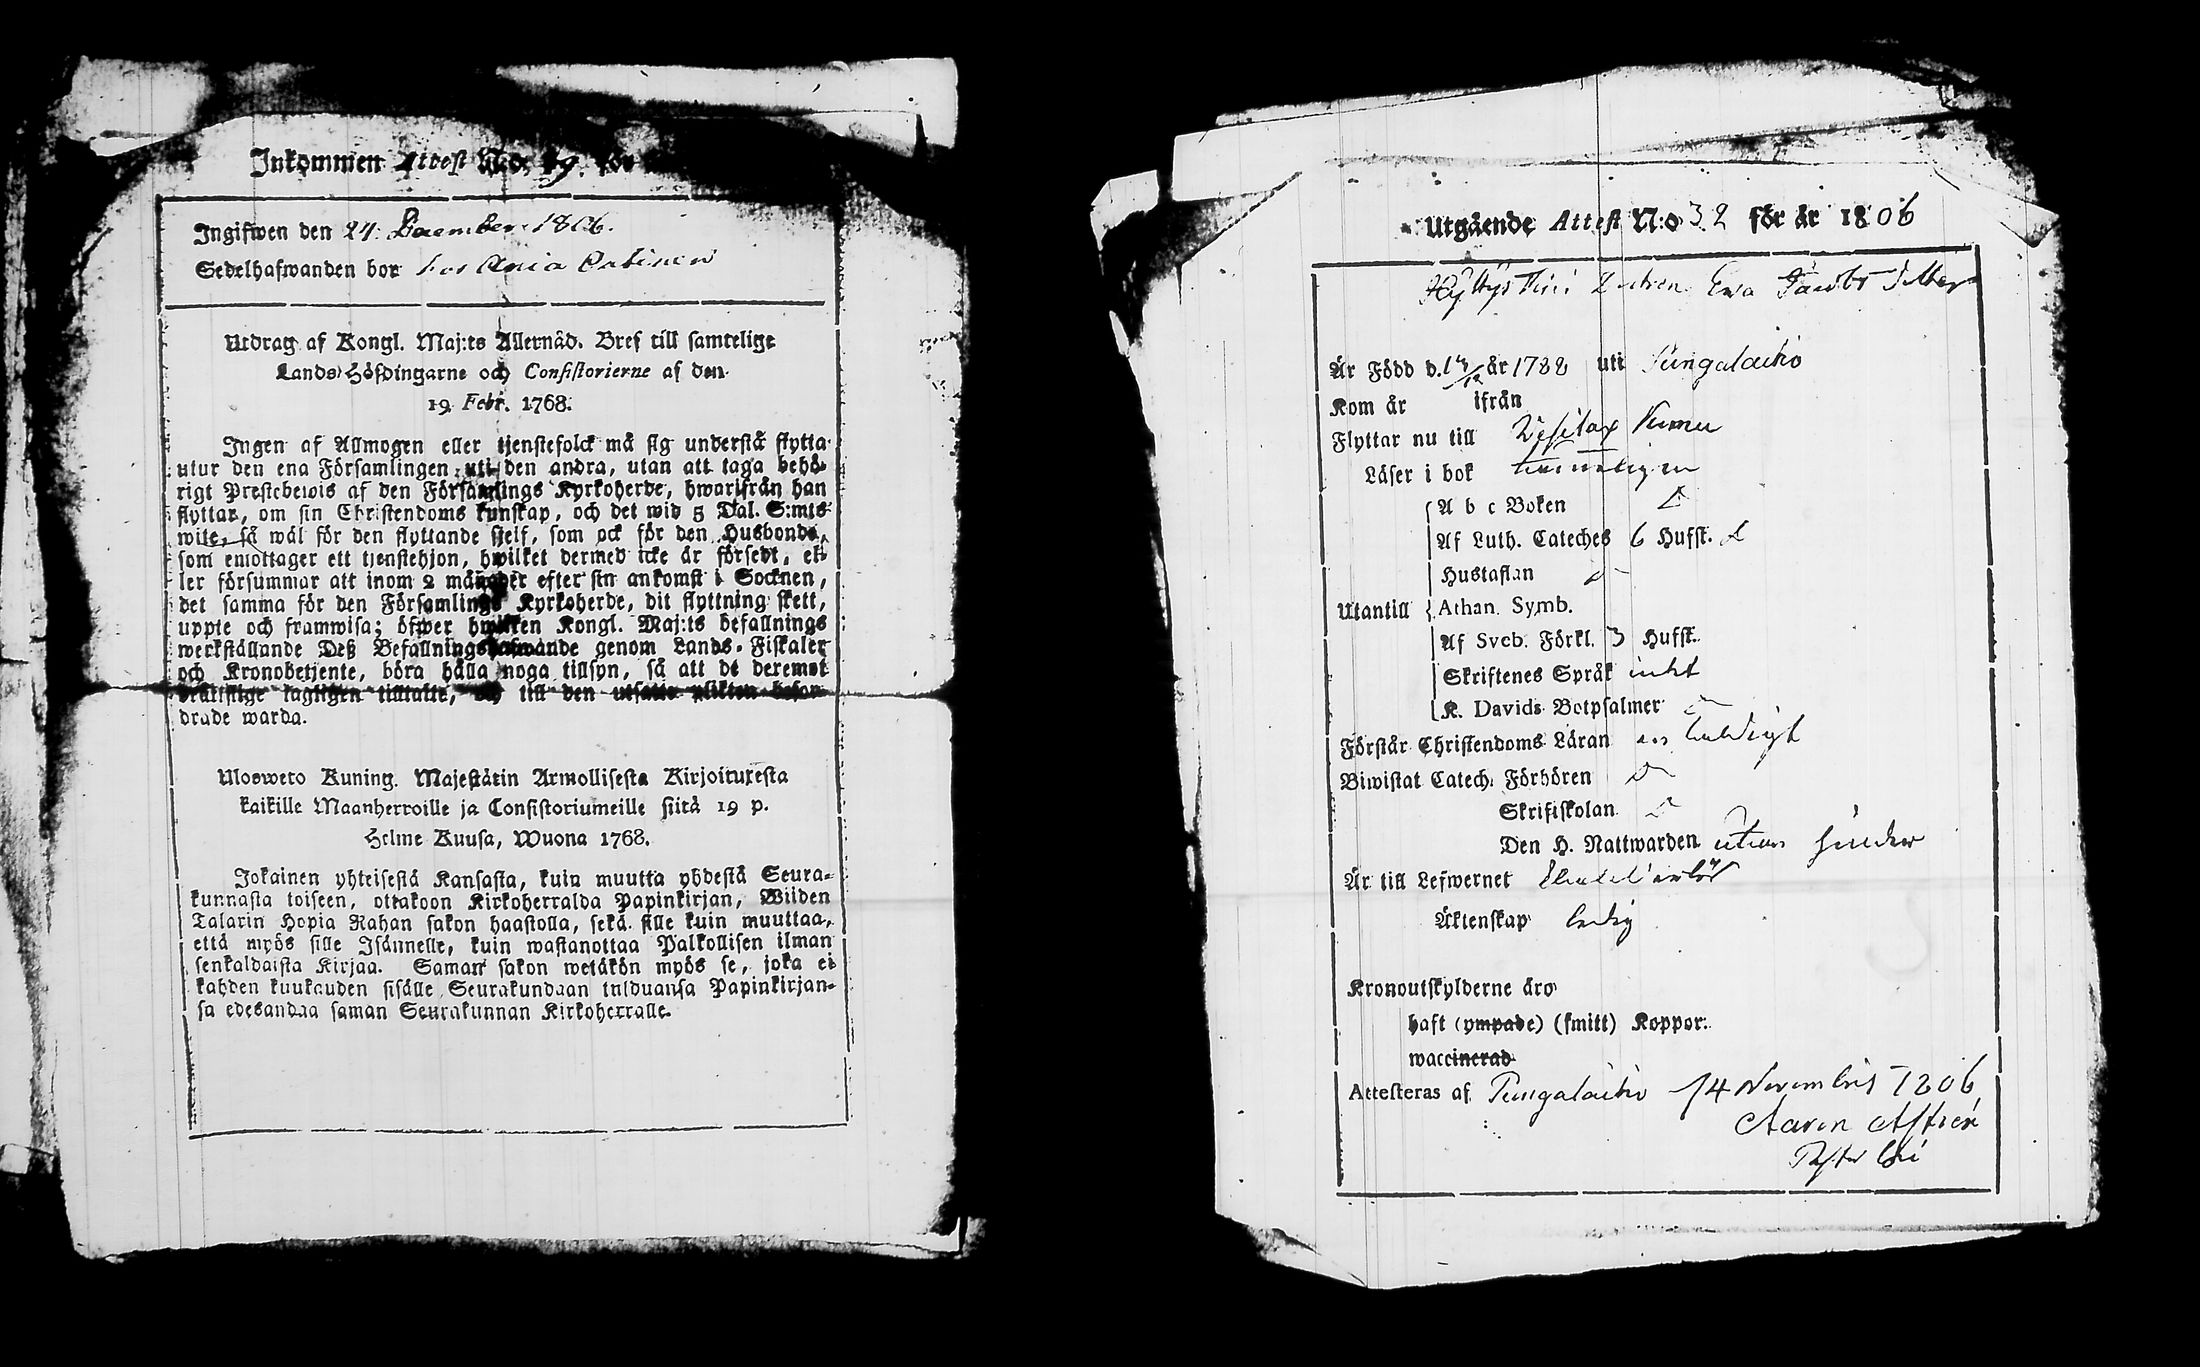 Inkommen Attest N:o 19. för
Ingifwen den 24 December 1806.
Sedelhafwanden bor hos
Utdrag af Kongl. Maj:ts Allernåd. Bref till samtelige
Lands-Höfdingarne och Consistorierne af den
19 Febr. 1768.
Ingen af Allmogen eller tjenstefolck må sig understå flytta
utur den ena Församlingen uti den andra, utan att taga behö-
rigt Prestebewis af den Församlings Kyrkoherde, hwarifrån han
flyttar, om sin Christendoms kunskap, och det wid 5 Dal. S:mts
wite, så wäl för den flyttande sjelf, som ock för den Husbonde,
som emottager ett tjenstehjon, hwilket dermed icke är försedt, el-
ler försummar att inom 2 månader efter sin ankomst i Socknen,
det samma för den Församlings Kyrkoherde, dit flyttning skett,
uppte och framwisa; öfwer hwilken Kongl. Maj:ts befallnings
werkställande Deß Befallningshafwande genom Lands-Fiskaler
och Kronobetjente, böra hålla noga tillsyn, så att de deremot
bråttslige lagligen tilltalte, och till den utsatte plikten befor-
drade warda.
Ulosweto Kuning. Majestätin Armollisesta Kirjoituxesta
kaikille Maanherroille ja Consistoriumeille siitä 19 p.
Helme Kuusa, Wuona 1768.
Jokainen yhteisestä Kansasta, kuin muutta yhdestä Seura-
kunnasta toiseen, ottakoon Kirkoherralda Papinkirjan, Wiiden
Talarin Hopia Rahan sakon haastolla, sekä sille kuin muuttaa,
että myös sille Isännelle, kuin wastanottaa Palkollisen ilman
senkaldaista Kirjaa. Saman sakon wetäkön myös se, joka ei
kahden kuukauden sisälle Seurakundaan tulduansa Papinkirjan-
sa edesandaa saman Seurakunnan Kirkoherralle.
Utgående Attest N:o 32 för år 1806
Ewa Jacobs Dotter
Är Född d. 14/12 år 1788 uti Pungalaitio
Kom år ifrån
Flyttar nu till Wesilax
Läser i bok
A b c Boken
Af Luth. Cateches 6 Hufst.
Hustaflan
Utantill Athan. Symb.
Af Sveb. Förkl. 3 Hufst.
Skriftenes Språk intet
K. Davids Botpsalmer
Förstår Christendoms Läran
Biwistat Catech. Förhören
Skriftskolan
Den H. Nattwarden utan hinder
Är till Lefwernet
Äktenskap ledig
Kronoutskylderne äro
haft (ympade) (smitt) Koppor.
waccinerad
Attesteras af Pungalaitio 14 Novembris 1806
Aaron